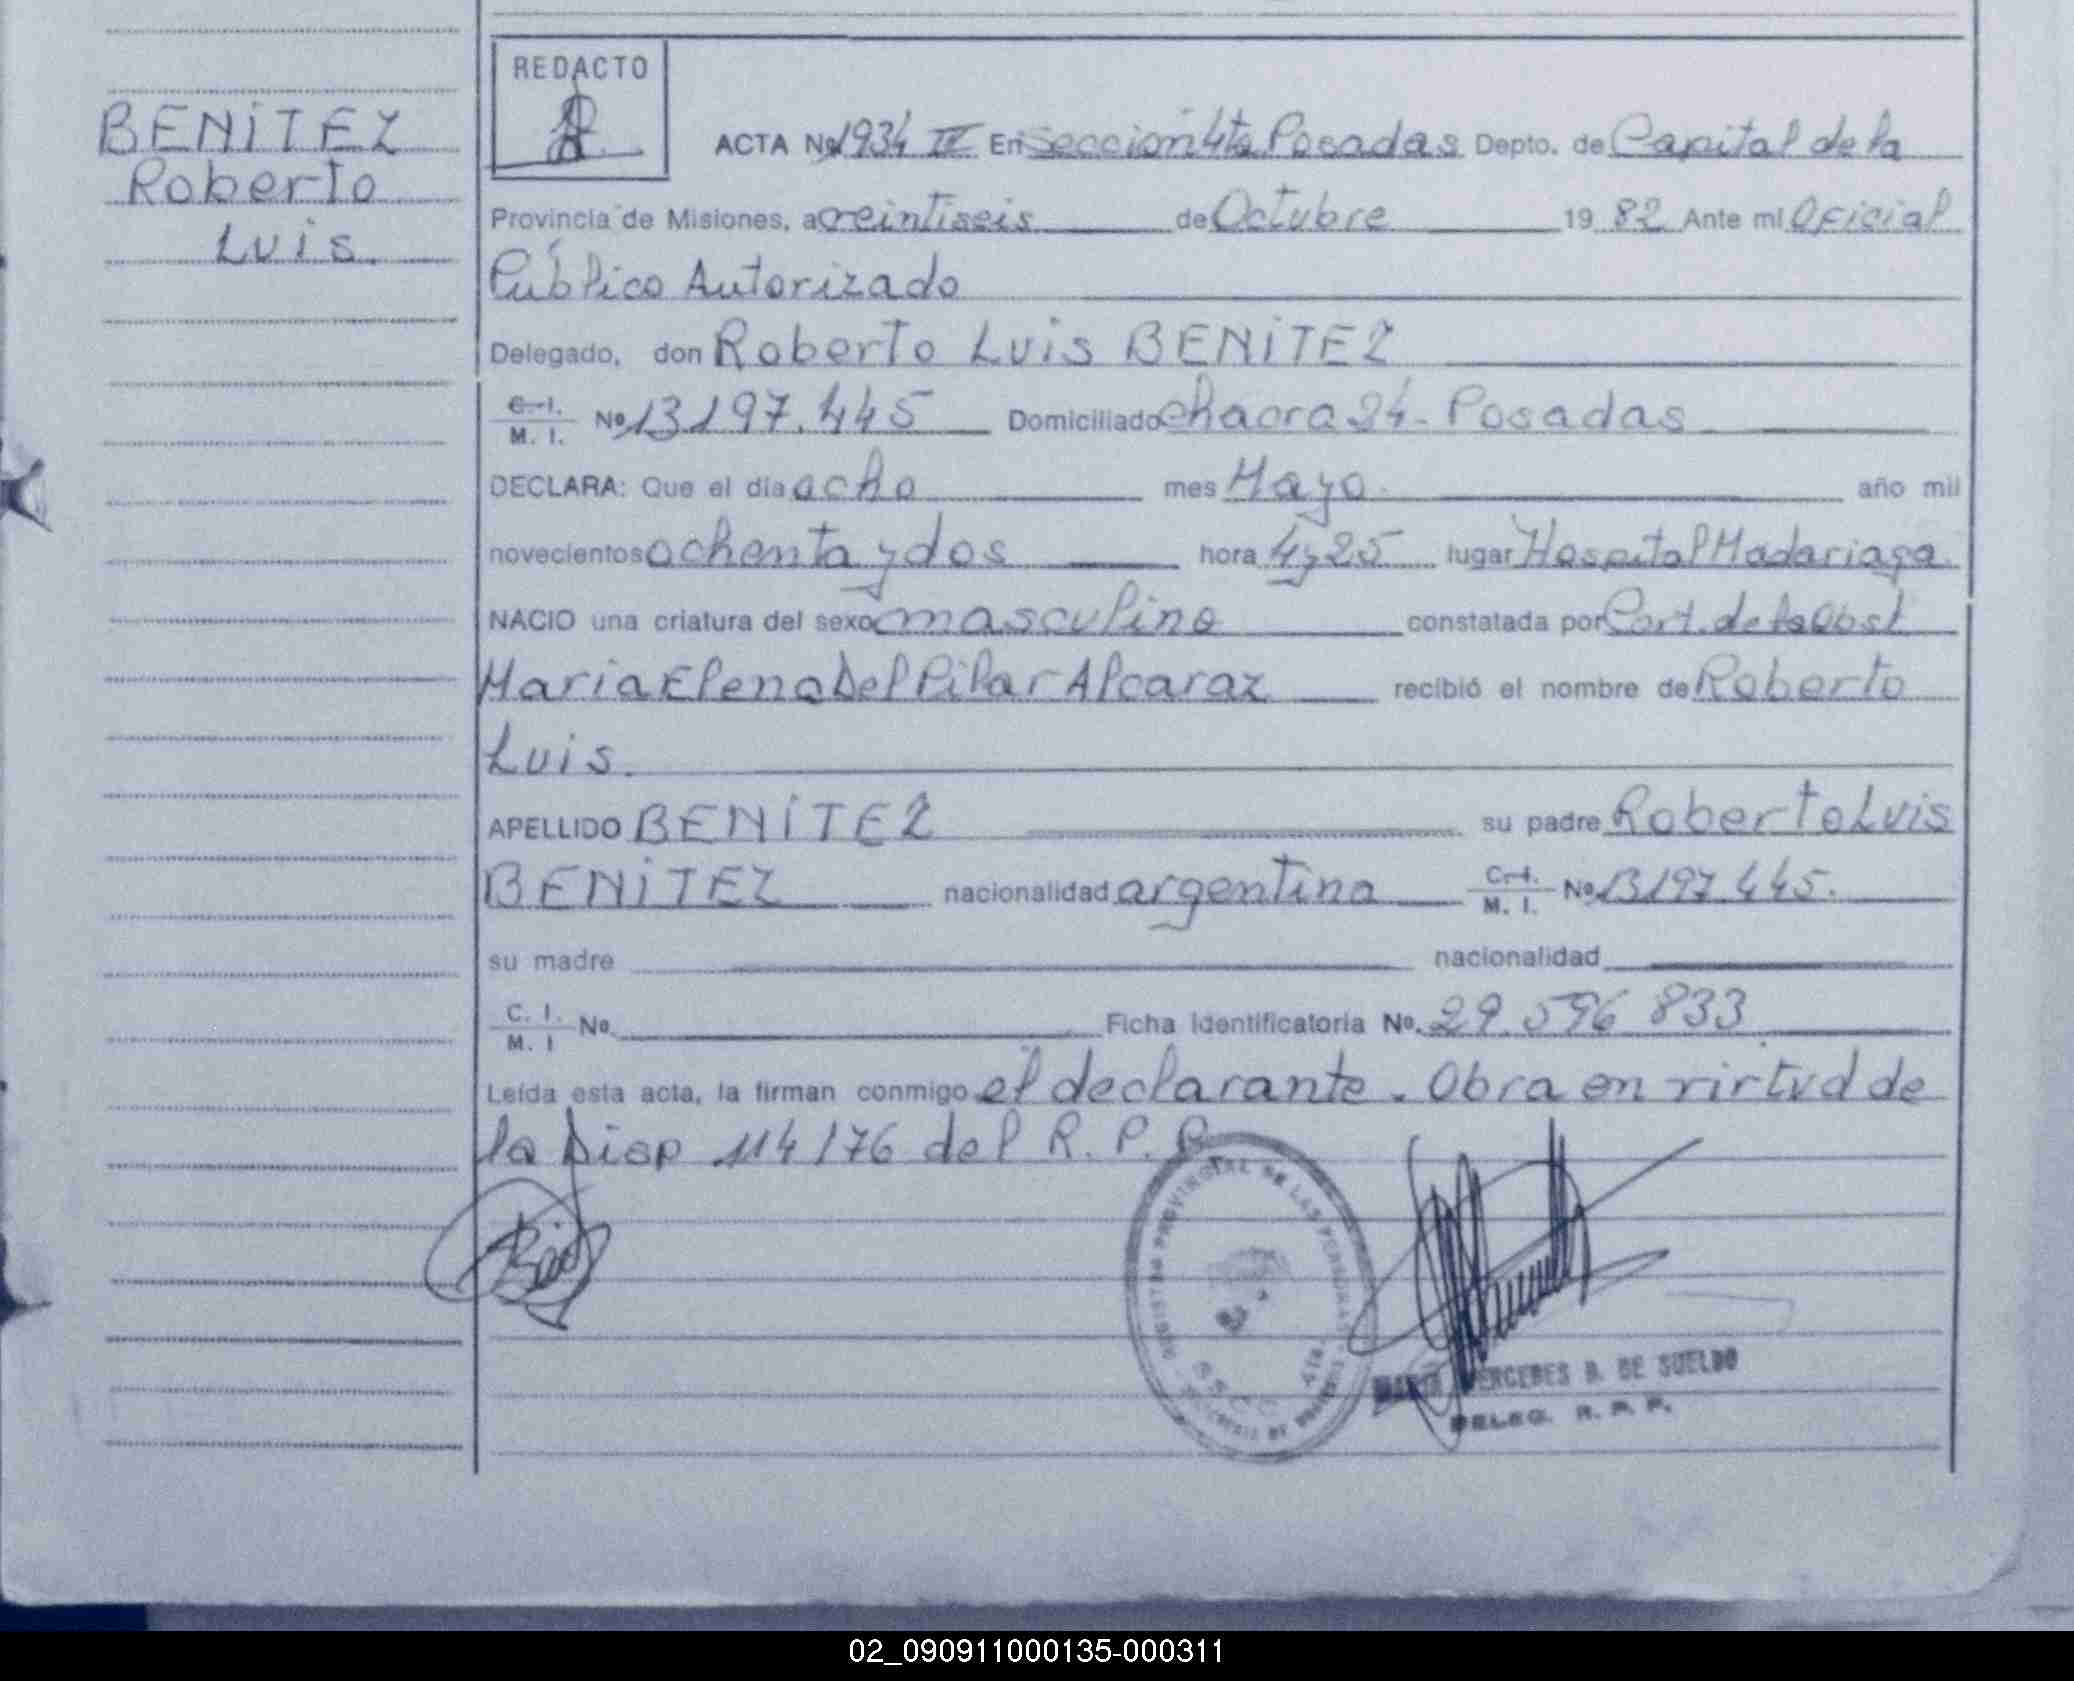 BENITEZ
Roberto
Luis.
REDACTO
ACTA Nº 1934 IV En Sección 4ta Posadas Depto. de Capital de la
Provincia de Misiones, a veintiseis de Octubre 19 82 Ante mí Oficial
Público Autorizado
Delegado, don Roberto Luis BENITEZ
C. I. M. I. Nº 13197.445 Domiciliado chacra 24 - Posadas
DECLARA: Que el día ocho mes Mayo. año mil
novecientos ochenta y dos hora 4y25 lugar Hospital Madariaga
NACIO una criatura del sexo masculino constatada por Cert. de la Obst
Maria Elena Del Pilar Alcaraz recibió el nombre de Roberto
Luis.
APELLIDO BENITEZ su padre Roberto Luis
BENITEZ nacionalidad argentina C. I. M. I. Nº 13197.445.
su madre nacionalidad
C. I. M. I Nº Ficha Identificatoria Nº. 29.596 833
Leída esta acta, la firman conmigo el declarante. Obra en virtud de
la Disp 114/76 del R. P. P.
REGISTRO PROVINCIAL DE LAS PERSONAS
4TA.
MARIA MERCEDES B. DE SUELDO
DELEG. R. P. P.
02_090911000135-000311